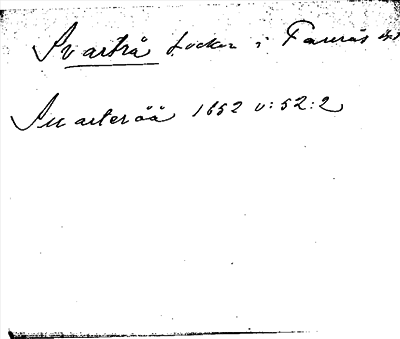 Svartrå socken i Faurås hd
Suarteråå 1652 v:52:2